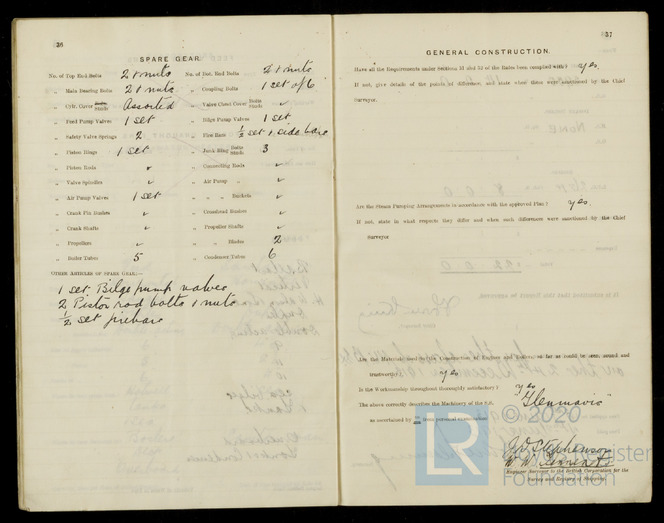 36
SPARE GEAR.
No. of Top End Bolts 2 + nuts No. of Bot. End Bolts 2 + nuts
„ Main Bearing Bolts 2 + nuts „ Coupling Bolts 1 set of 6
„ Cylr. Cover Bolts Studs Assorted „ Valve Chest Cover Bolts Studs ✓
„ Feed Pump Valves 1 set „ Bilge Pump Valves 1 set
„ Safety Valve Springs 2 „ Fire Bars ½ set 1 side bars
„ Piston Rings 1 set „ Junk Ring Bolts Studs 3
„ Piston Rods ✓ „ Connecting Rods ✓
„ Valve Spindles ✓ „ Air Pump „ ✓
„ Air Pump Valves 1 set „ „ „ Buckets ✓
„ Crank Pin Bushes ✓ „ Crosshead Bushes ✓
„ Crank Shafts ✓ „ Propeller Shafts ✓
„ Propellers ✓ „ „ Blades 2
„ Boiler Tubes 5 „ Condenser Tubes 6
OTHER ARTICLES OF SPARE GEAR:—
1 set Bilge pump valves
2 Piston rod bolts 1 nuts
½ set firebars
37
GENERAL CONSTRUCTION.
Have all the Requirements under Sections 31 and 33 of the Rules been complied with? Yes.
If not, give details of the points of difference, and state when these were sanctioned by the Chief
Surveyor.
Are the Steam Pumping Arrangements in accordance with the approved Plan? Yes.
If not, state in what respects they differ and when such differences were sanctioned by the Chief
Surveyor
Are the Materials used in the Construction of Engines and Boilers, so far as could be seen, sound and
trustworthy? Yes
Is the Workmanship throughout thoroughly satisfactory? Yes
The above correctly describes the Machinery of the S.S. "Glenmavis"
as ascertained by from personal examination
© 2020
LR
Lloyd's Register
Foundation
J.D. Stephenson
Engineer Surveyor to the British Corporation for the
Survey and Registry of Shipping.